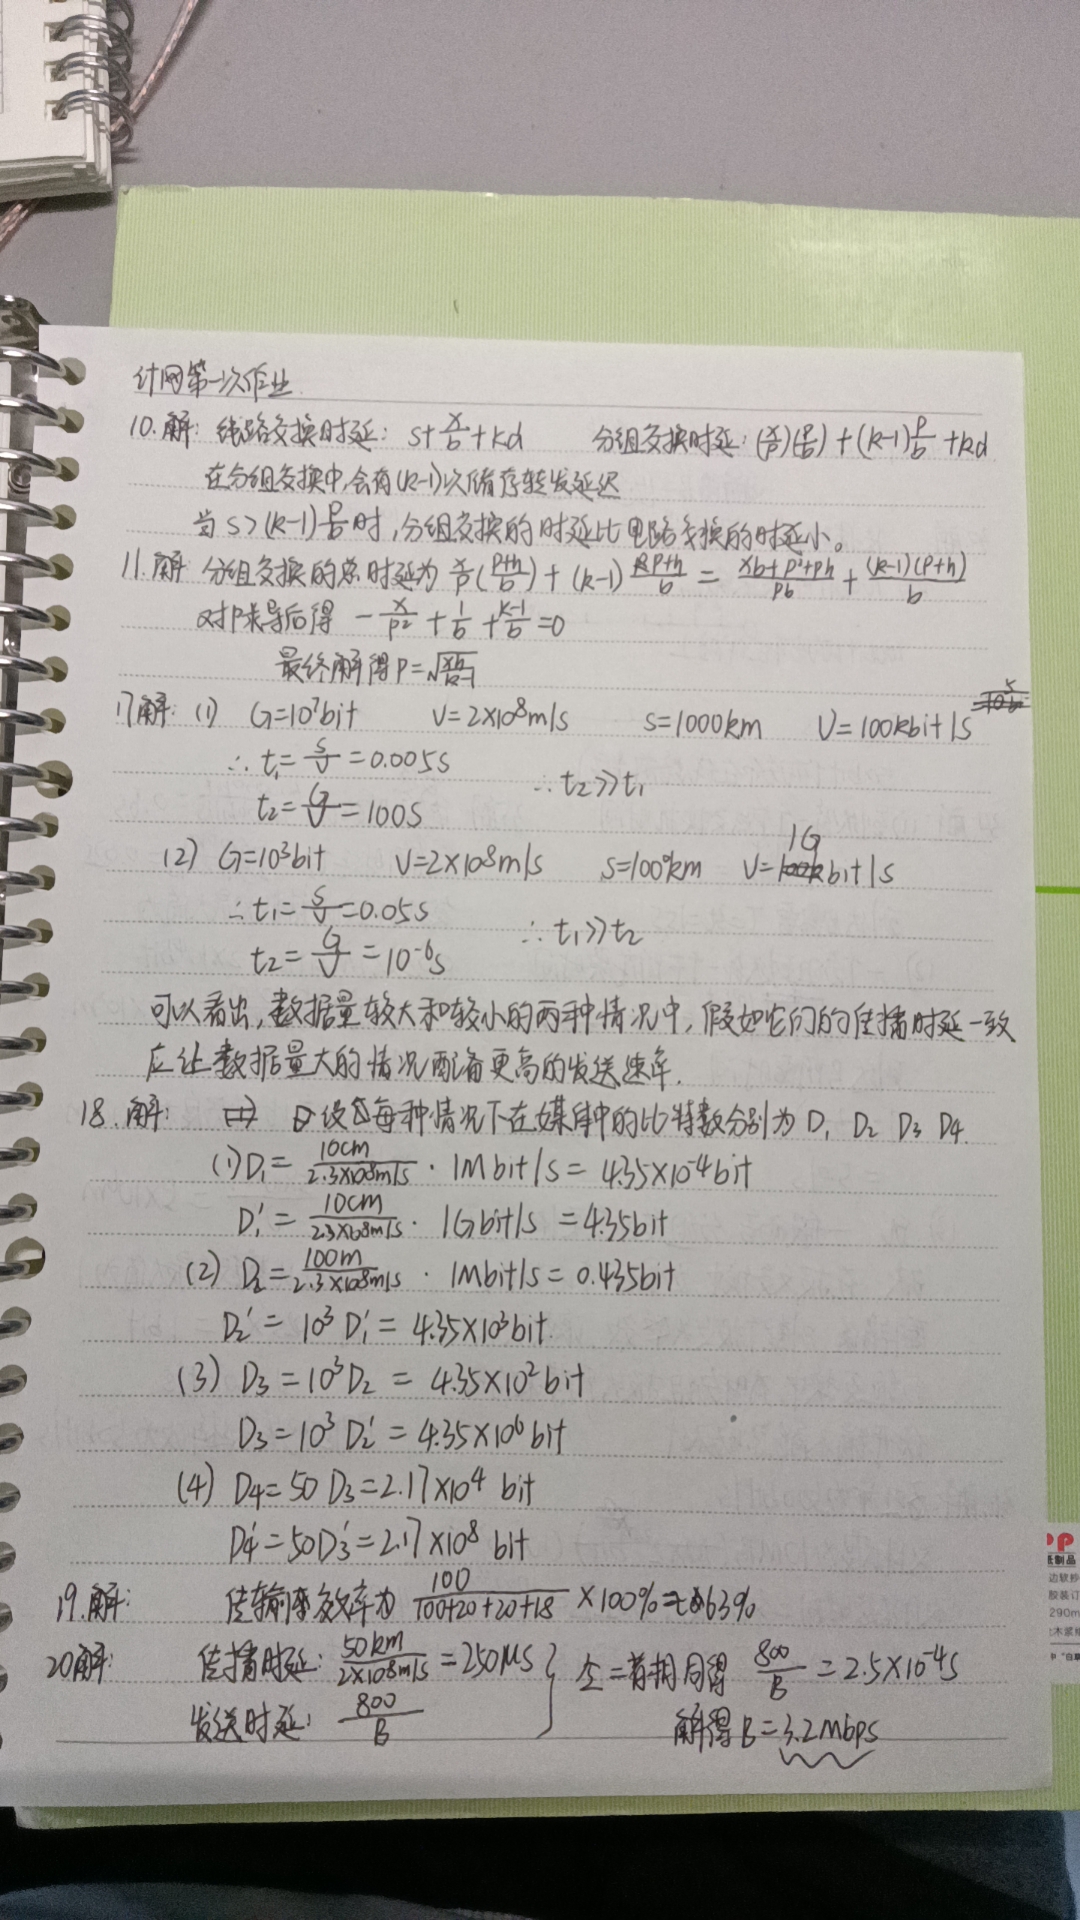 计网第一次作业.
10.解: 线路交换时延: s+x/b+kd 分组交换时延: (x/p)(p/b)+(k-1)p/b+kd
在分组交换中,会有(k-1)次储存转发延迟
当 s>(k-1)p/b 时,分组交换的时延比电路交换的时延小。
11.解 分组交换的总时延为 x/p((p+h)/b)+(k-1)(p+h)/b = (xb+p²+ph)/pb + (k-1)(p+h)/b
对P求导后得 -x/p²+1/b+(k-1)/b=0
最终解得P=√(xh/(k-1))
17解: (1) G=10⁷bit V=2×10⁸m/s S=1000km V=100kbit/s
∴t₁=S/V=0.005s
t₂=G/V=100S ∴t₂≫t₁
(2) G=10³bit V=2×10⁸m/s S=1000km V=1Gbit/s
∴t₁=S/V=0.05s
t₂=G/V=10⁻⁶s ∴t₁≫t₂
可以看出,数据量较大和较小的两种情况中,假如它们的传播时延一致
应让数据量大的情况配备更高的发送速率.
18.解: 设每种情况下在媒体中的比特数分别为 D₁ D₂ D₃ D₄.
(1) D₁=10cm/2.3×10⁸m/s · 1Mbit/s=4.35×10⁻⁴bit
D₁'=10cm/2.3×10⁸m/s · 1Gbit/s=4.35bit
(2) D₂=100m/2.3×10⁸m/s · 1Mbit/s=0.435bit
D₂'=10³D₁'=4.35×10³bit.
(3) D₃=10³D₂=4.35×10²bit
D₃=10³D₂'=4.35×10⁶bit
(4) D₄=50D₃=2.17×10⁴ bit
D₄'=50D₃'=2.17×10⁸ bit
19.解: 传输效率为 100/(100+20+20+18)×100%=63%
20解: 传播时延: 50km/2×10⁸m/s=250μs 令二者相同得 800/B=2.5×10⁻⁴s
发送时延: 800/B 解得B=3.2Mbps